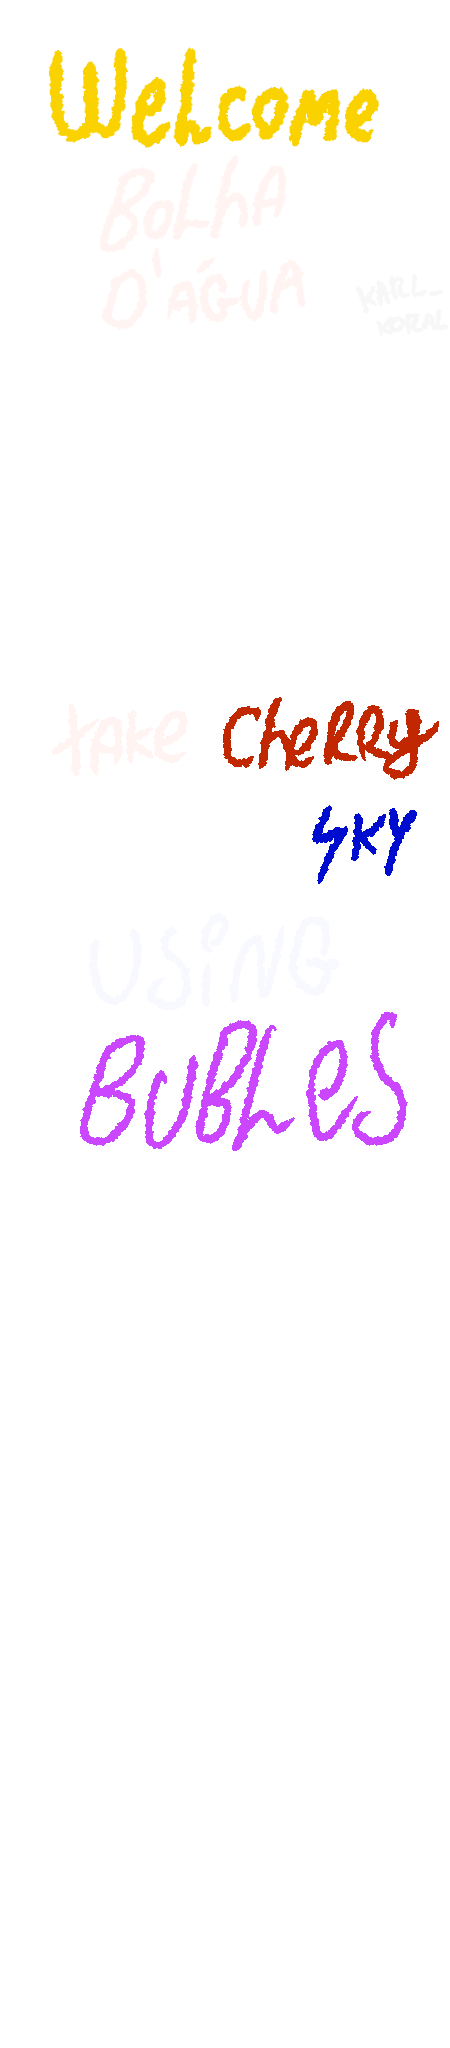 Welcome
BOLhA
D'ÁGUA
KARL_
KORAL
tAke CheRRy
SKY
USiNG
BUBLeS